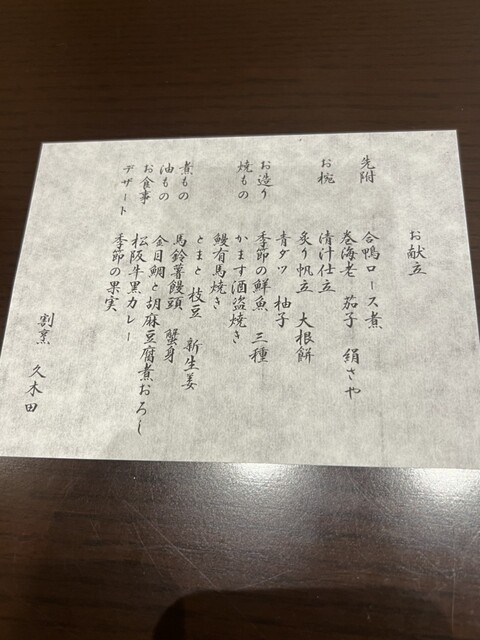 お献立
先附 合鴨ロース煮
巻海老 茄子 絹さや
お椀 清汁仕立
炙り帆立 大根餅
青ダツ 柚子
お造り 季節の鮮魚 三種
焼もの かます酒盗焼き
鰻有馬焼き
とまと 枝豆 新生姜
煮もの 馬鈴薯饅頭 蟹身
油もの 金目鯛と胡麻豆腐煮おろし
お食事 松阪牛黒カレー
デザート 季節の果実
割烹 久木田